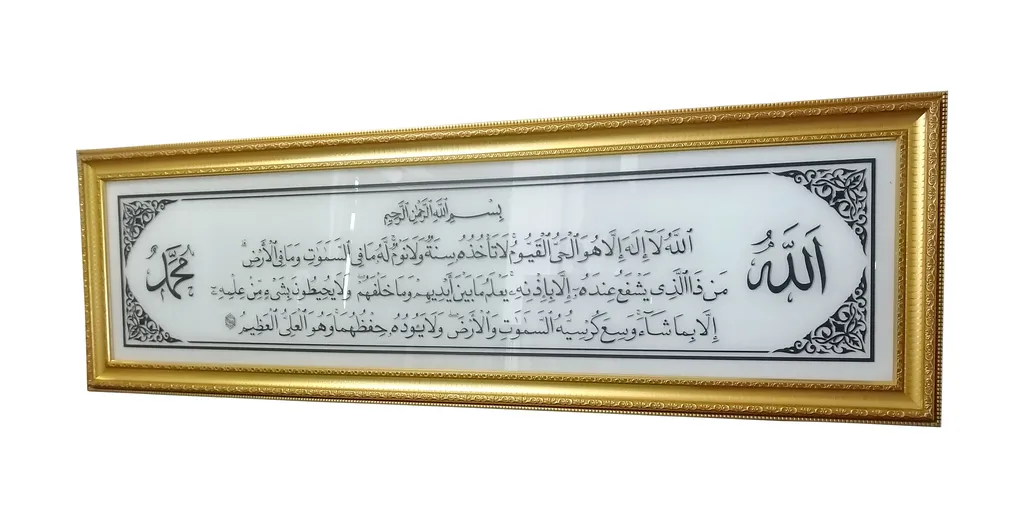 بِسْمِ اللَّهِ الرَّحْمَٰنِ الرَّحِيمِ
اللَّهُ
اللَّهُ لَا إِلَٰهَ إِلَّا هُوَ الْحَيُّ الْقَيُّومُ ۚ لَا تَأْخُذُهُ سِنَةٌ وَلَا نَوْمٌ ۚ لَهُ مَا فِي السَّمَٰوَٰتِ وَمَا فِي الْأَرْضِ ۗ
مَن ذَا الَّذِي يَشْفَعُ عِندَهُ إِلَّا بِإِذْنِهِ ۚ يَعْلَمُ مَا بَيْنَ أَيْدِيهِمْ وَمَا خَلْفَهُمْ ۖ وَلَا يُحِيطُونَ بِشَيْءٍ مِّنْ عِلْمِهِ
إِلَّا بِمَا شَاءَ ۚ وَسِعَ كُرْسِيُّهُ السَّمَٰوَٰتِ وَالْأَرْضَ ۖ وَلَا يَئُودُهُ حِفْظُهُمَا ۚ وَهُوَ الْعَلِيُّ الْعَظِيمُ
مُحَمَّد